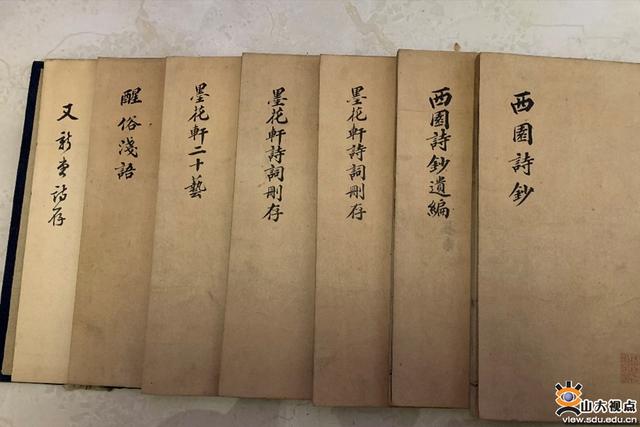 西園詩鈔
西園詩鈔遺編
墨花軒詩詞刪存
墨花軒詩詞刪存
墨花軒二十藝
醒俗淺語
又新堂詩存
山大视点
view.sdu.edu.cn